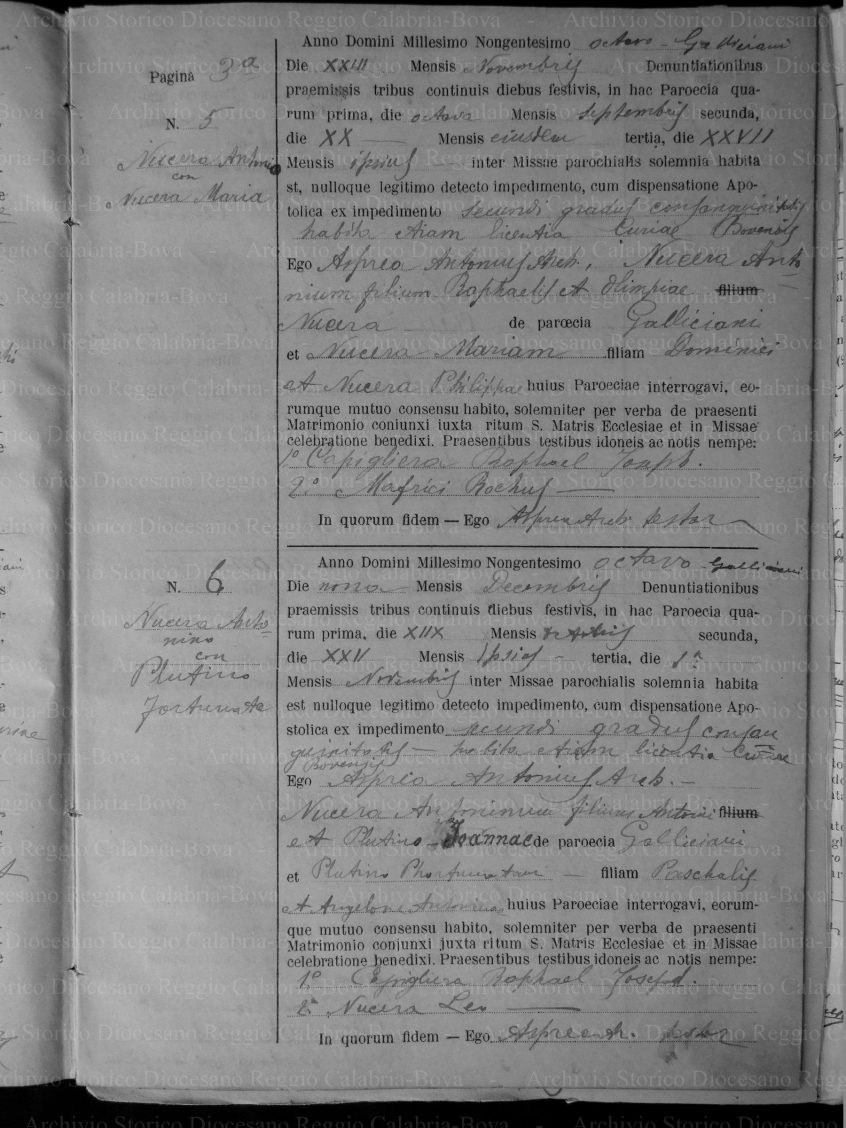 Archivio Storico Diocesano Reggio Calabria-Bova
Pagina 3a
N. 5
Nucera Antonio
con
Nucera Maria
Anno Domini Millesimo Nongentesimo octavo - Galliciani
Die XXIII Mensis Novembris Denuntiationibus
praemissis tribus continuis diebus festivis, in hac Paroecia qua-
rum prima, die octava Mensis septembris secunda,
die XX Mensis eiusdem tertia, die XXVII
Mensis ipsius inter Missae parochialis solemnia habita
st, nulloque legitimo detecto impedimento, cum dispensatione Apo-
tolica ex impedimento secundi gradus consanguinitatis
habita etiam licentia Curiae Bovensis
Ego Asprea Antonius Arch. Nucera Anto
nium filium Raphaelis et Olimpiae filium
Nucera de parœcia Galliciani
et Nucera Mariam filiam Dominici
et Nucera Philippae huius Paroeciae interrogavi, eo-
rumque mutuo consensu habito, solemniter per verba de praesenti
Matrimonio coniunxi iuxta ritum S. Matris Ecclesiae et in Missae
celebratione benedixi. Praesentibus testibus idoneis ac notis nempe:
1° Capigliera Raphael Joseph.
2.° Mafrici Rochus
In quorum fidem — Ego Asprea Arch. testor
N. 6
Nucera Anto-
nino
con
Plutino
Fortunata
Anno Domini Millesimo Nongentesimo octavo Galliciani
Die nona Mensis Decembris Denuntiationibus
praemissis tribus continuis diebus festivis, in hac Paroecia qua-
rum prima, die XIIX Mensis secunda,
die XXV Mensis ipsius - tertia, die 1a
Mensis Novembris inter Missae parochialis solemnia habita
est nulloque legitimo detecto impedimento, cum dispensatione Apo-
stolica ex impedimento secundi gradus consan
guinitatis - habita etiam licentia Curiae
Bovensis
Ego Asprea Antonius Arch. -
Nucera Antoninum filium Antonii filium
et Plutino Joannae de paroecia Galliciani
et Plutino Phortunatam - filiam Paschalis
et Angelone Antoninae huius Paroeciae interrogavi, eorum-
que mutuo consensu habito, solemniter per verba de praesenti
Matrimonio conjunxi juxta ritum S. Matris Ecclesiae et in Missae
celebratione benedixi. Praesentibus testibus idoneis ac notis nempe:
1.° Capigliera Raphael Joseph.
2.° Nucera Leo
In quorum fidem — Ego Asprea Ar. testor